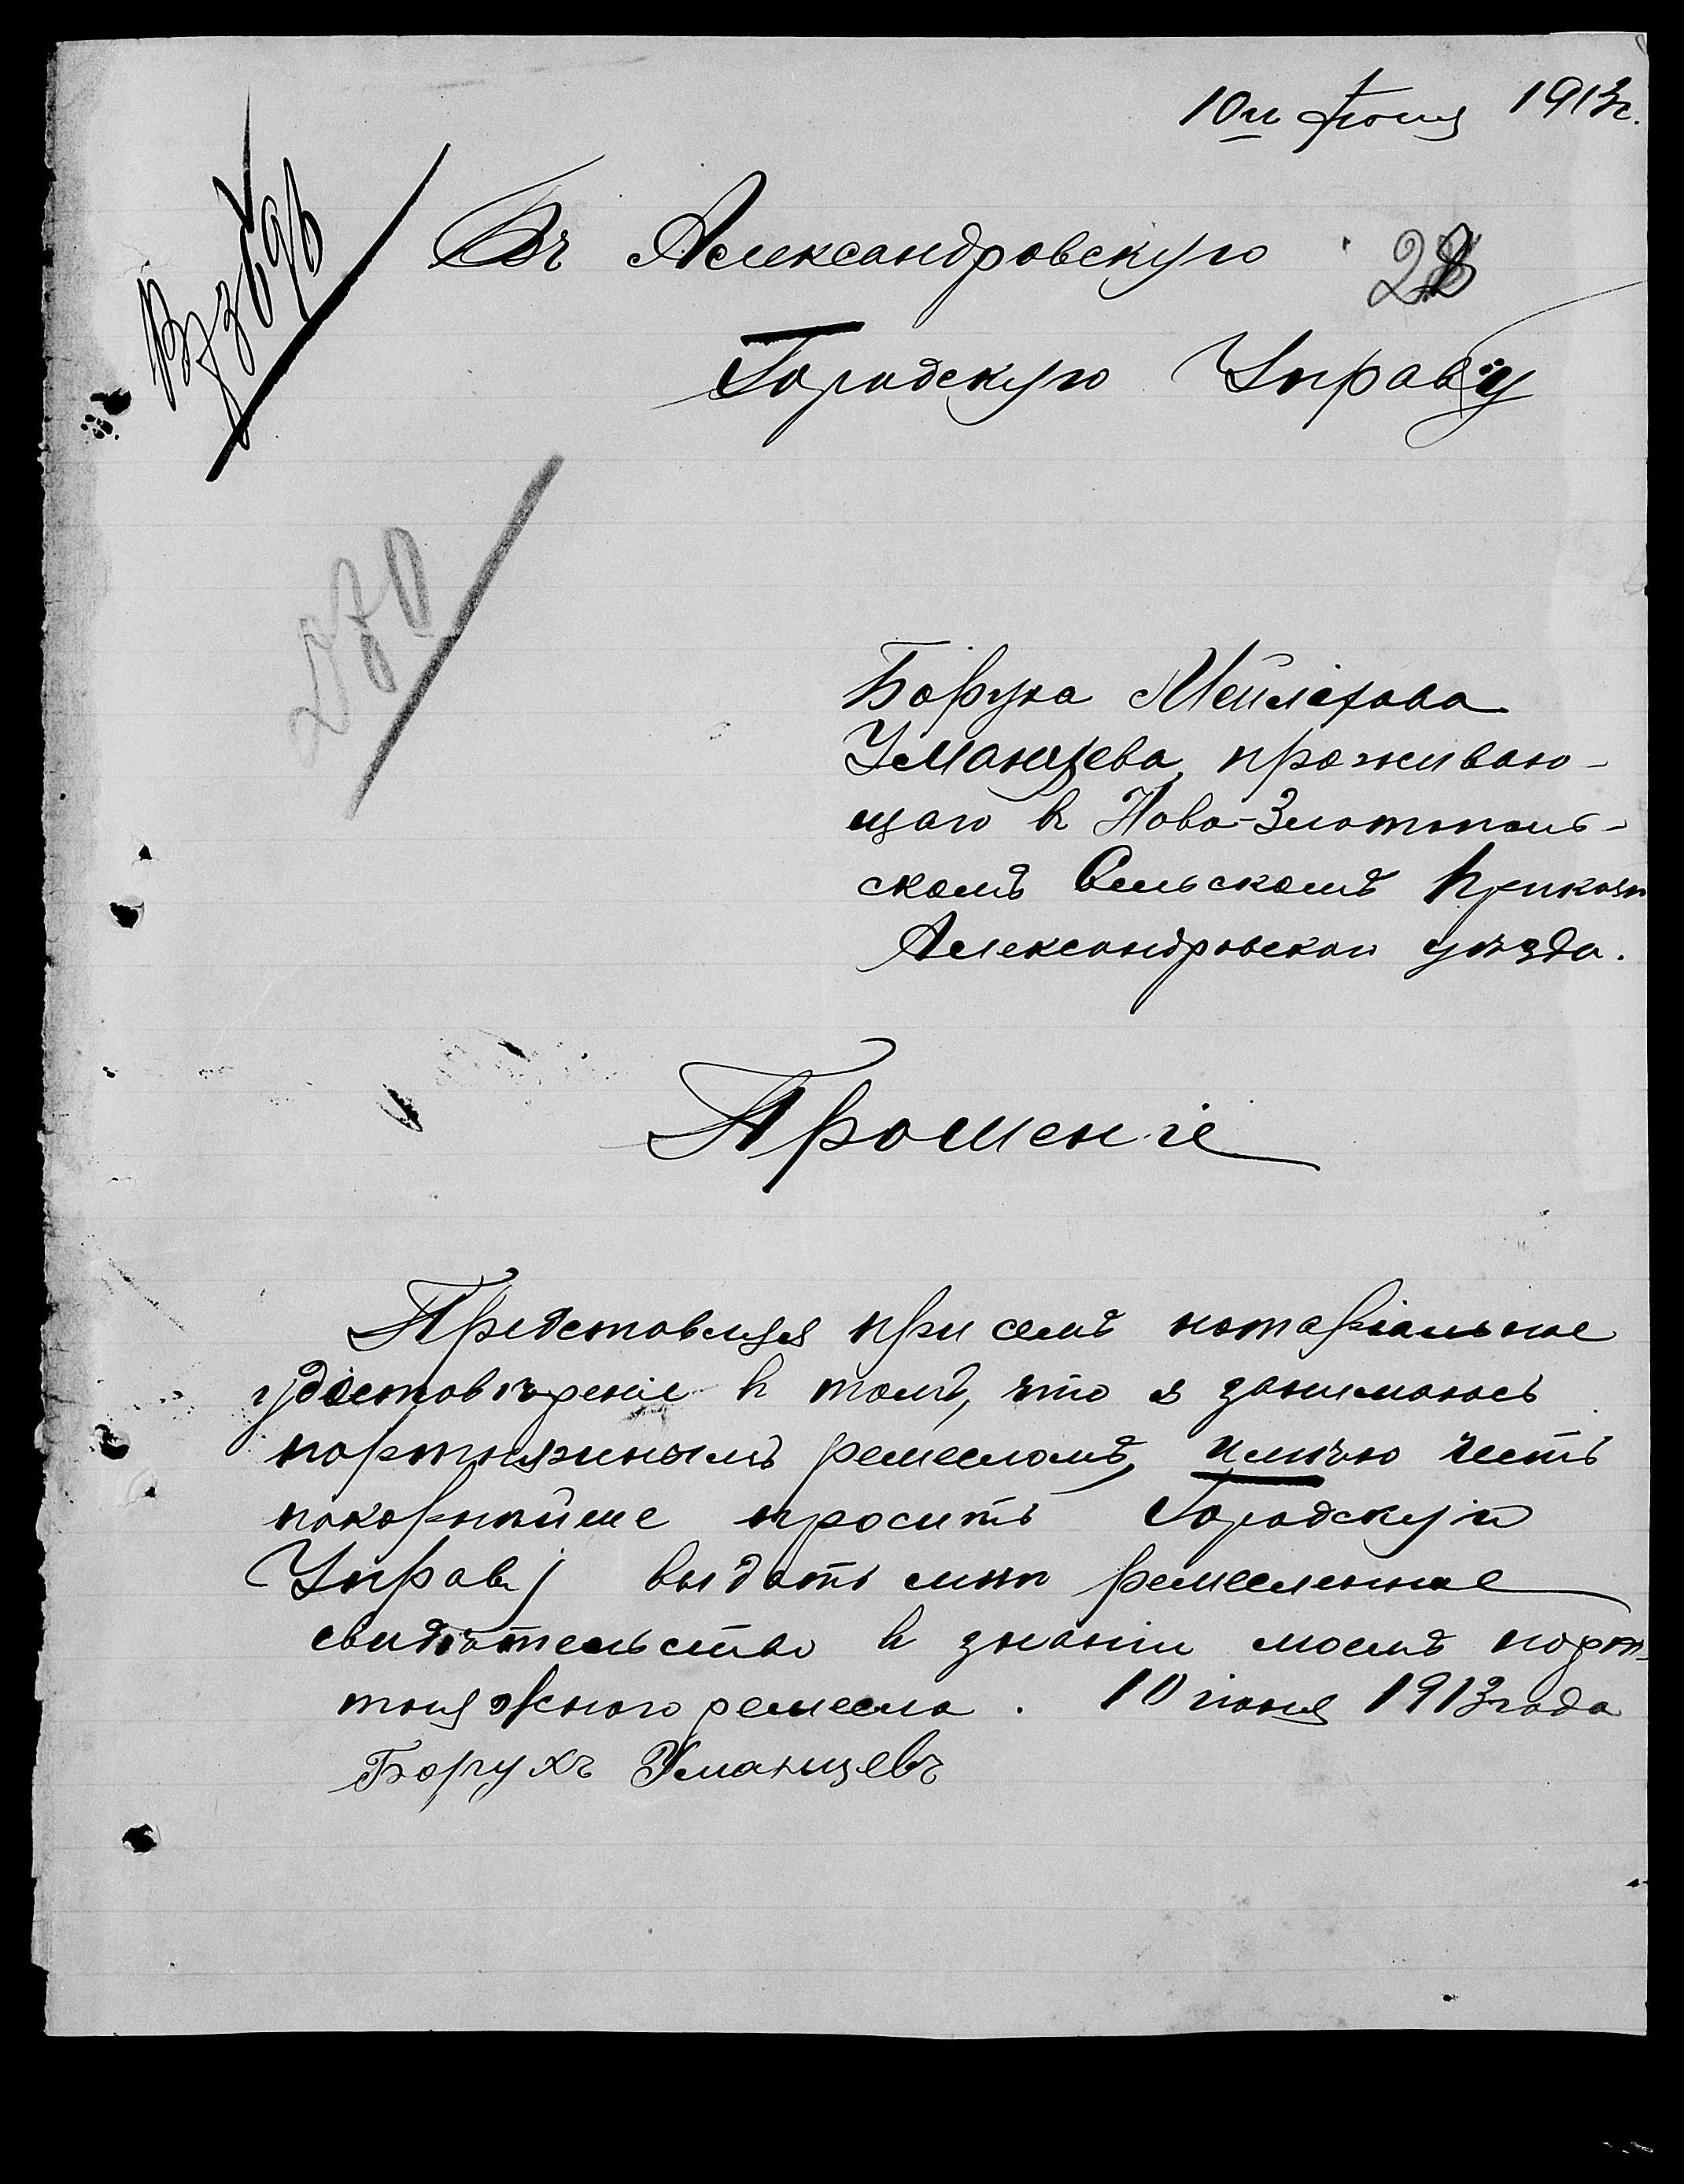 10го Іюня 1913г.
Въ Александровскую
28
Городскую Управу
270
Боруха Мейлехова
Уманцева, проживаю-
щаго въ Ново-Златополь-
скомъ Сельскомъ Приказѣ
Александровскаго уѣзда.
Прошеніе
Представляя при семъ нотаріальное
удостовѣреніе въ томъ, что я занимаюсь
ремесломъ, имѣю честь
покорнѣйше просить Городскую
Управу выдать мнѣ ремесленное
свидѣтельство въ знаніи моемъ порт-
ремесла. 10 іюня 1913 года
Борухъ Уманцевъ